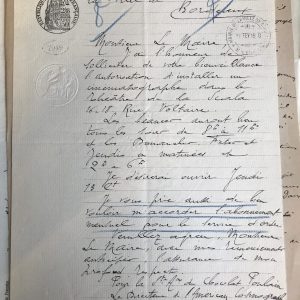 Bordeaux
Monsieur Le Maire,
J'ai l'honneur de
solliciter de votre bienveillance
l'autorisation d'installer un
cinématographe dans le
théâtre de la Scala
16-18 Rue Voltaire.
Les séances auront lieu
tous les soirs de 8h à 11h
et les Dimanches, Fêtes et
Jeudis en matinées de
2h à 6h
Je désirerais ouvrir Jeudi
13 Ct
Je vous prie de bien
vouloir m'accorder l'abonnement
mensuel pour le service d'ordre
Veuillez agréer, Monsieur
le Maire, avec mes remerciements
anticipés l'assurance de mon
profond respect.
Pour la du Chocolat Poulain
Le Directeur de l'American